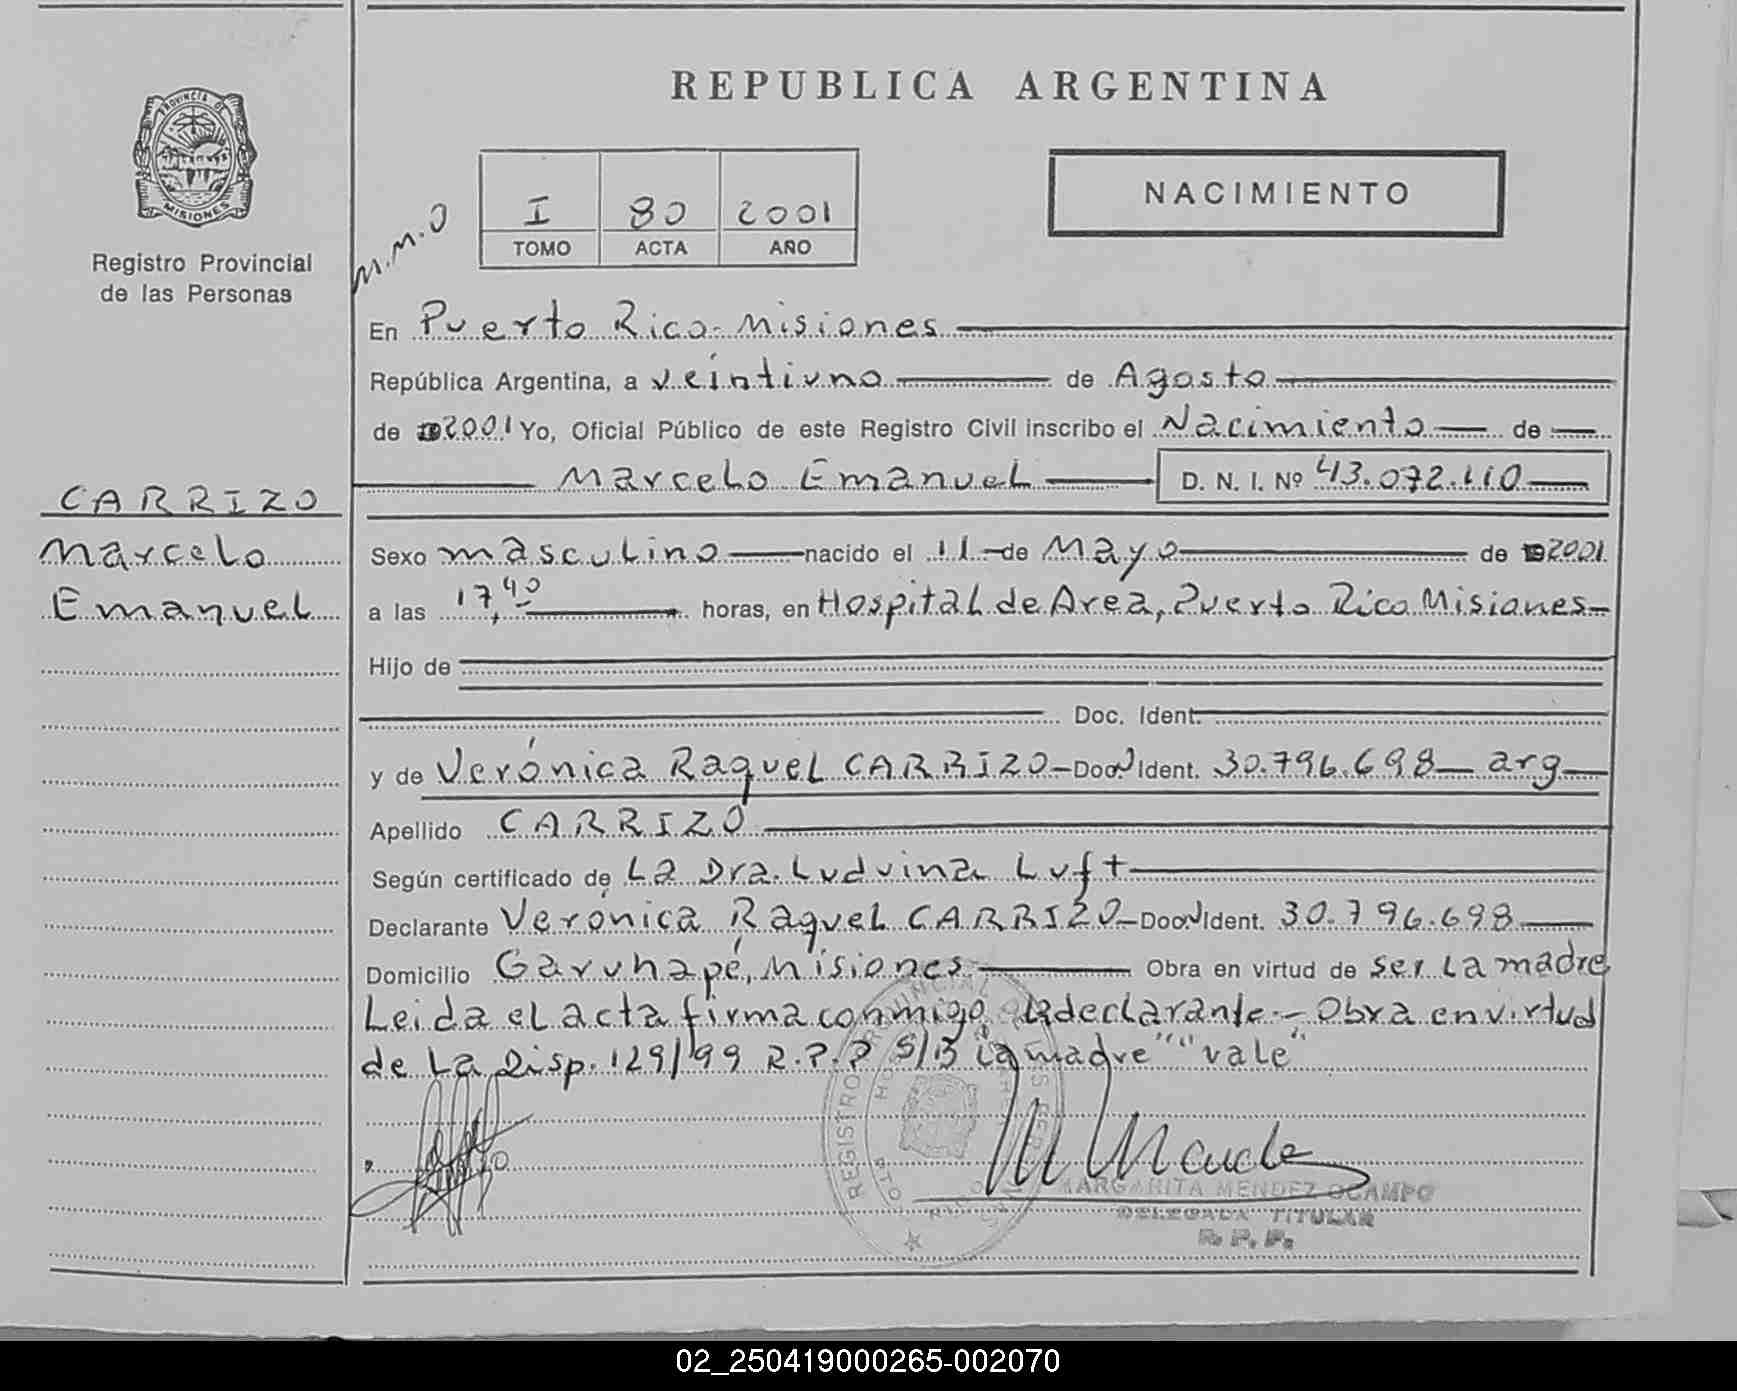 REPUBLICA ARGENTINA
PROVINCIA DE
MISIONES
Registro Provincial
de las Personas
M.M.O
I 80 2001
TOMO ACTA AÑO
NACIMIENTO
En Puerto Rico-Misiones
República Argentina, a veintiuno de Agosto
de 2001 Yo, Oficial Público de este Registro Civil inscribo el Nacimiento de
Marcelo Emanuel D. N. I. Nº 43.072.110
CARRIZO
Marcelo
Emanuel
Sexo masculino nacido el 11 de Mayo de 2001
a las 17,40 horas, en Hospital de Area, Puerto Rico Misiones
Hijo de
Doc. Ident.
y de Verónica Raquel CARRIZO Doc. Ident. 30.796.698 arg
Apellido CARRIZO
Según certificado de La Dra. Ludvina Luft
Declarante Verónica Raquel CARRIZO Doc. Ident. 30.796.698
Domicilio Garuhapé, Misiones Obra en virtud de ser La madre
Leida el acta firma conmigo la declarante.- Obra en virtud
de La Disp. 129/99 R.P.P S/B la madre "" vale"
REGISTRO PROVINCIAL DE LAS PER
PTO RICO
MARGARITA MENDEZ OCAMPO
DELEGADA TITULAR
R. P. P.
02_250419000265-002070